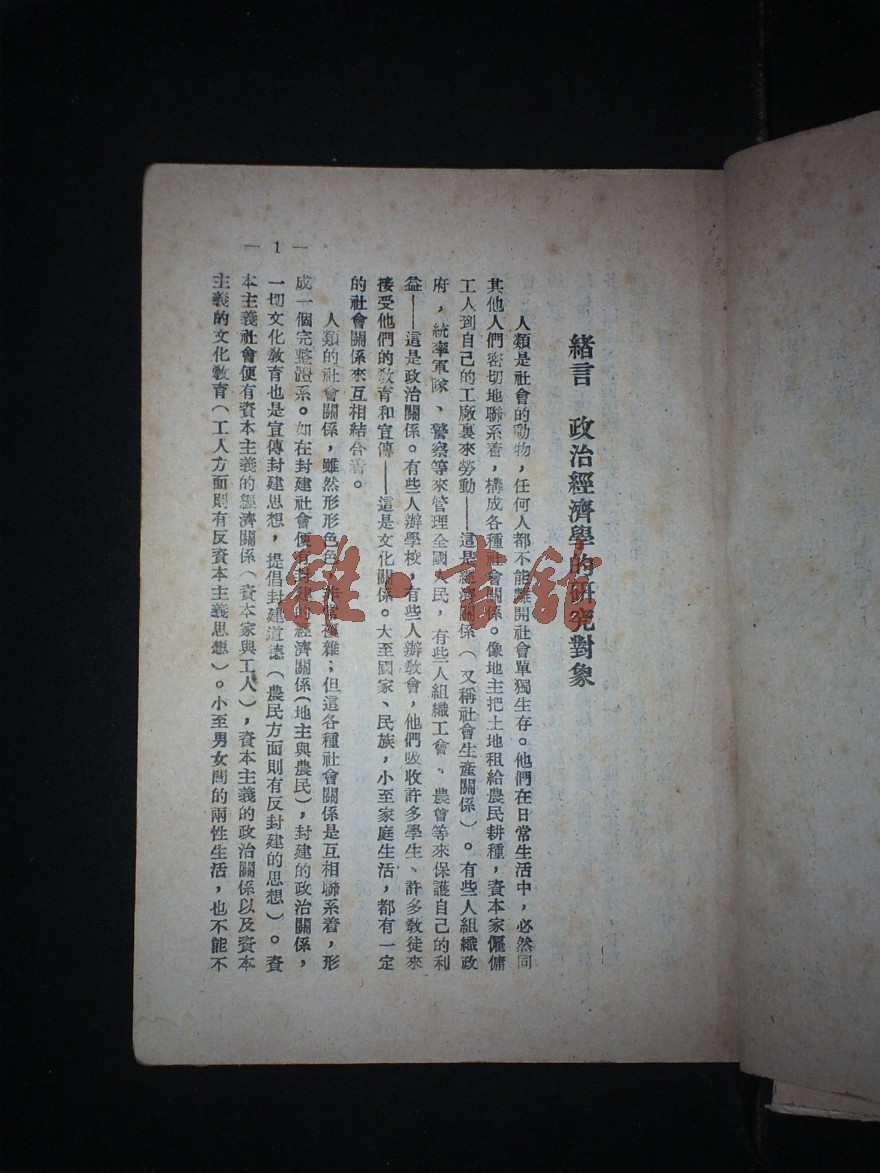 緒言 政治經濟學的研究對象
人類是社會的動物，任何人都不能離開社會單獨生存。他們在日常生活中，必然同
其他人們密切地聯系着，構成各種社會關係。像地主把土地租給農民耕種，資本家僱傭
工人到自己的工廠裏來勞動——這是經濟關係（又稱社會生產關係）。有些人組織政
府，統率軍隊、警察等來管理全國人民，有些人組織工會、農會等來保護自己的利
益——這是政治關係。有些人辦學校，有些人辦教會，他們吸收許多學生、許多教徒來
接受他們的教育和宣傳——這是文化關係。大至國家、民族，小至家庭生活，都有一定
的社會關係來互相結合着。
人類的社會關係，雖然形形色色，非常複雜；但這各種社會關係是互相聯系着，形
成一個完整體系。如在封建社會便有封建的經濟關係（地主與農民），封建的政治關係，
一切文化教育也是宣傳封建思想，提倡封建道德（農民方面則有反封建的思想）。資
本主義社會便有資本主義的經濟關係（資本家與工人），資本主義的政治關係以及資本
主義的文化教育（工人方面則有反資本主義思想）。小至男女間的兩性生活，也不能不
— 1 —
雜·書館